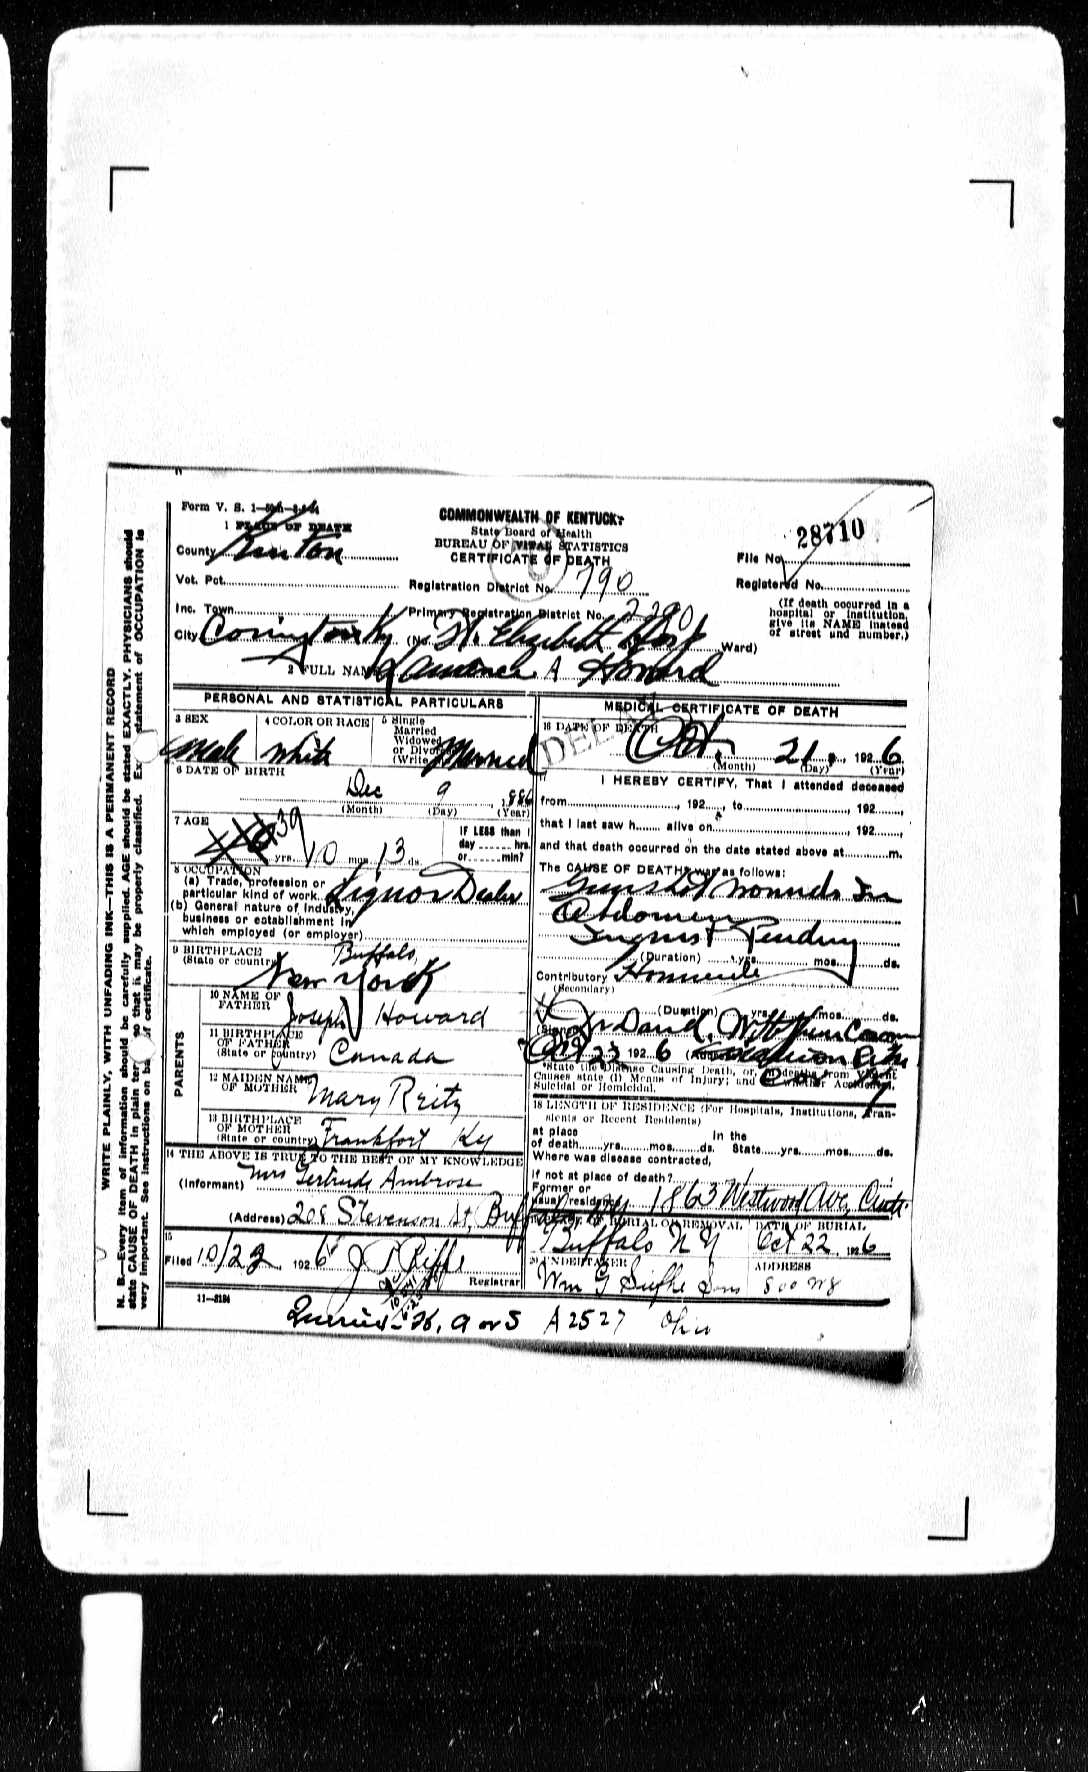 Form V. S. 1
COMMONWEALTH OF KENTUCKY
State Board of Health
BUREAU OF VITAL STATISTICS
CERTIFICATE OF DEATH
28710
File No.
Registered No.
(If death occurred in a hospital or institution, give its NAME instead of street and number.)
1 PLACE OF DEATH
County Kenton
Vot. Pct.
Registration District No. 790
Inc. Town
Primary Registration District No. 2290
City Covington Ky (No. St. Elizabeth Hosp Ward)
2 FULL NAME Lawrence A Howard
PERSONAL AND STATISTICAL PARTICULARS
3 SEX Male
4 COLOR OR RACE White
5 Single Married Widowed or Divorced (Write Married
6 DATE OF BIRTH
Dec 9, 1886
(Month) (Day) (Year)
7 AGE
39 yrs. 10 mos. 13 ds.
IF LESS than 1 day ...... hrs. or ...... min?
8 OCCUPATION
(a) Trade, profession or particular kind of work. Liquor Dealer
(b) General nature of industry, business or establishment in which employed (or employer)
9 BIRTHPLACE (State or country) Buffalo, New York
PARENTS
10 NAME OF FATHER Joseph Howard
11 BIRTHPLACE OF FATHER (State or country) Canada
12 MAIDEN NAME OF MOTHER Mary Reitz
13 BIRTHPLACE OF MOTHER (State or country) Frankfort Ky
14 THE ABOVE IS TRUE TO THE BEST OF MY KNOWLEDGE
(Informant) Mrs Gertrude Ambrose
(Address) 208 Stevenson St, Buffalo, NY
15
Filed 10/22 1926 J P Riffe
Registrar
11—3184
MEDICAL CERTIFICATE OF DEATH
16 DATE OF DEATH
Oct. 21, 1926
(Month) (Day) (Year)
17 I HEREBY CERTIFY, That I attended deceased
from ......, 192..., to ......, 192...,
that I last saw h...... alive on ......, 192...,
and that death occurred on the date stated above at ......m.
The CAUSE OF DEATH was as follows:
Gunshot wounds in
Abdomen
Inquest Pending
(Duration) ...yrs. ...mos. ...ds.
Contributory Homicide
(Secondary)
(Duration) ...yrs. ...mos. ...ds.
(Signed) Dr David
Oct 22 1926 (Address) Pike
Cov
*State the Disease Causing Death, or, in deaths from Violent Causes state (1) Means of Injury; and (2) whether Accidental, Suicidal or Homicidal.
18 LENGTH OF RESIDENCE (For Hospitals, Institutions, Transients or Recent Residents)
at place of death...yrs...mos...ds. In the State...yrs...mos...ds.
Where was disease contracted,
if not at place of death?
Former or usual residence 1863 Westwood Ave, Cinti
19 PLACE OF BURIAL OR REMOVAL Buffalo N Y
DATE OF BURIAL Oct 22 1926
20 UNDERTAKER Wm G Sons
ADDRESS
A 2527 Ohio
WRITE PLAINLY, WITH UNFADING INK—THIS IS A PERMANENT RECORD
N. B.—Every item of information should be carefully supplied. AGE should be stated EXACTLY. PHYSICIANS should
state CAUSE OF DEATH in plain terms, so that it may be properly classified. Exact statement of OCCUPATION is
very important. See instructions on back of certificate.